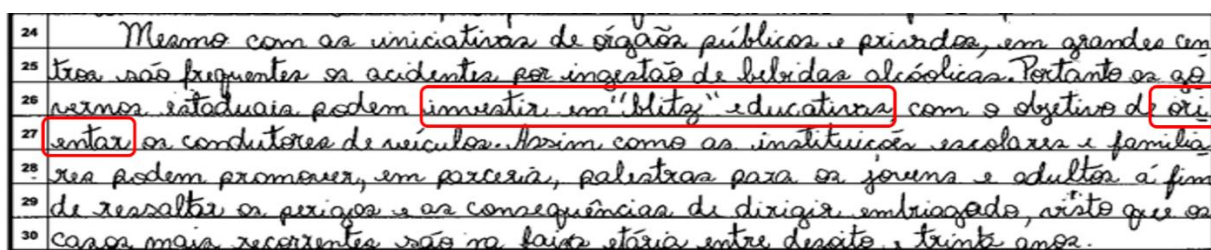 24 Mesmo com as iniciativas de órgãos públicos e privados, em grandes cen
25 tros são frequentes os acidentes por ingestão de bebidas alcóolicas. Portanto os go
26 vernos estaduais podem investir em "blitz" educativas com o objetivo de ori
27 entar os condutores de veículos. Assim como as instituições escolares e familia
28 res podem promover, em parceria, palestras para os jovens e adultos á fim
29 de ressaltar os perigos e as consequências de dirigir embriagado, visto que os
30 casos mais recorrentes são na faixa etária entre dezoito e trinta anos.